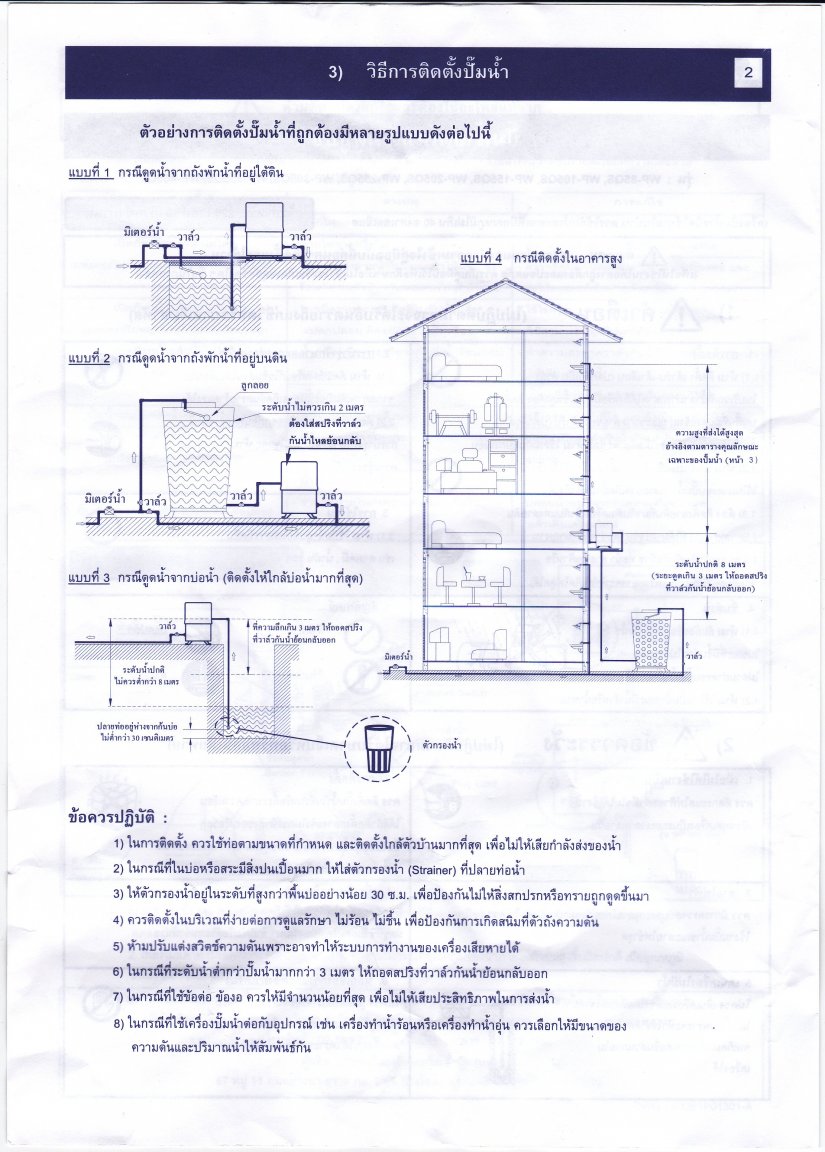 3) วิธีการติดตั้งปั๊มน้ำ
2
ตัวอย่างการติดตั้งปั๊มน้ำที่ถูกต้องมีหลายรูปแบบดังต่อไปนี้
แบบที่ 1 กรณีดูดน้ำจากถังพักน้ำที่อยู่ใต้ดิน
มิเตอร์น้ำ
วาล์ว
วาล์ว
แบบที่ 2 กรณีดูดน้ำจากถังพักน้ำที่อยู่บนดิน
ลูกลอย
ระดับน้ำไม่ควรเกิน 2 เมตร
ต้องใส่สปริงที่วาล์ว
กันน้ำไหลย้อนกลับ
มิเตอร์น้ำ
วาล์ว
วาล์ว
วาล์ว
แบบที่ 3 กรณีดูดน้ำจากบ่อน้ำ (ติดตั้งให้ใกล้บ่อน้ำมากที่สุด)
วาล์ว
ที่ความลึกเกิน 3 เมตร ให้ถอดสปริง
ที่วาล์วกันน้ำย้อนกลับออก
ระดับน้ำปกติ
ไม่ควรต่ำกว่า 8 เมตร
ปลายท่ออยู่ห่างจากก้นบ่อ
ไม่ต่ำกว่า 30 เซนติเมตร
ตัวกรองน้ำ
แบบที่ 4 กรณีติดตั้งในอาคารสูง
ความสูงที่ส่งได้สูงสุด
อ้างอิงตามตารางคุณลักษณะ
เฉพาะของปั๊มน้ำ (หน้า 3)
ระดับน้ำปกติ 8 เมตร
(ระยะดูดเกิน 3 เมตร ให้ถอดสปริง
ที่วาล์วกันน้ำย้อนกลับออก)
มิเตอร์น้ำ
วาล์ว
ข้อควรปฏิบัติ :
1) ในการติดตั้ง ควรใช้ท่อตามขนาดที่กำหนด และติดตั้งใกล้ตัวบ้านมากที่สุด เพื่อไม่ให้เสียกำลังส่งของน้ำ
2) ในกรณีที่ในบ่อหรือสระมีสิ่งปนเปื้อนมาก ให้ใส่ตัวกรองน้ำ (Strainer) ที่ปลายท่อน้ำ
3) ให้ตัวกรองน้ำอยู่ในระดับที่สูงกว่าพื้นบ่ออย่างน้อย 30 ซ.ม. เพื่อป้องกันไม่ให้สิ่งสกปรกหรือทรายถูกดูดขึ้นมา
4) ควรติดตั้งในบริเวณที่ง่ายต่อการดูแลรักษา ไม่ร้อน ไม่ชื้น เพื่อป้องกันการเกิดสนิมที่ตัวถังความดัน
5) ห้ามปรับแต่งสวิตช์ความดันเพราะอาจทำให้ระบบการทำงานของเครื่องเสียหายได้
6) ในกรณีที่ระดับน้ำต่ำกว่าปั๊มน้ำมากกว่า 3 เมตร ให้ถอดสปริงที่วาล์วกันน้ำย้อนกลับออก
7) ในกรณีที่ใช้ข้อต่อ ข้องอ ควรให้มีจำนวนน้อยที่สุด เพื่อไม่ให้เสียประสิทธิภาพในการส่งน้ำ
8) ในกรณีที่ใช้เครื่องปั๊มน้ำต่อกับอุปกรณ์ เช่น เครื่องทำน้ำร้อนหรือเครื่องทำน้ำอุ่น ควรเลือกให้มีขนาดของ
ความดันและปริมาณน้ำให้สัมพันธ์กัน